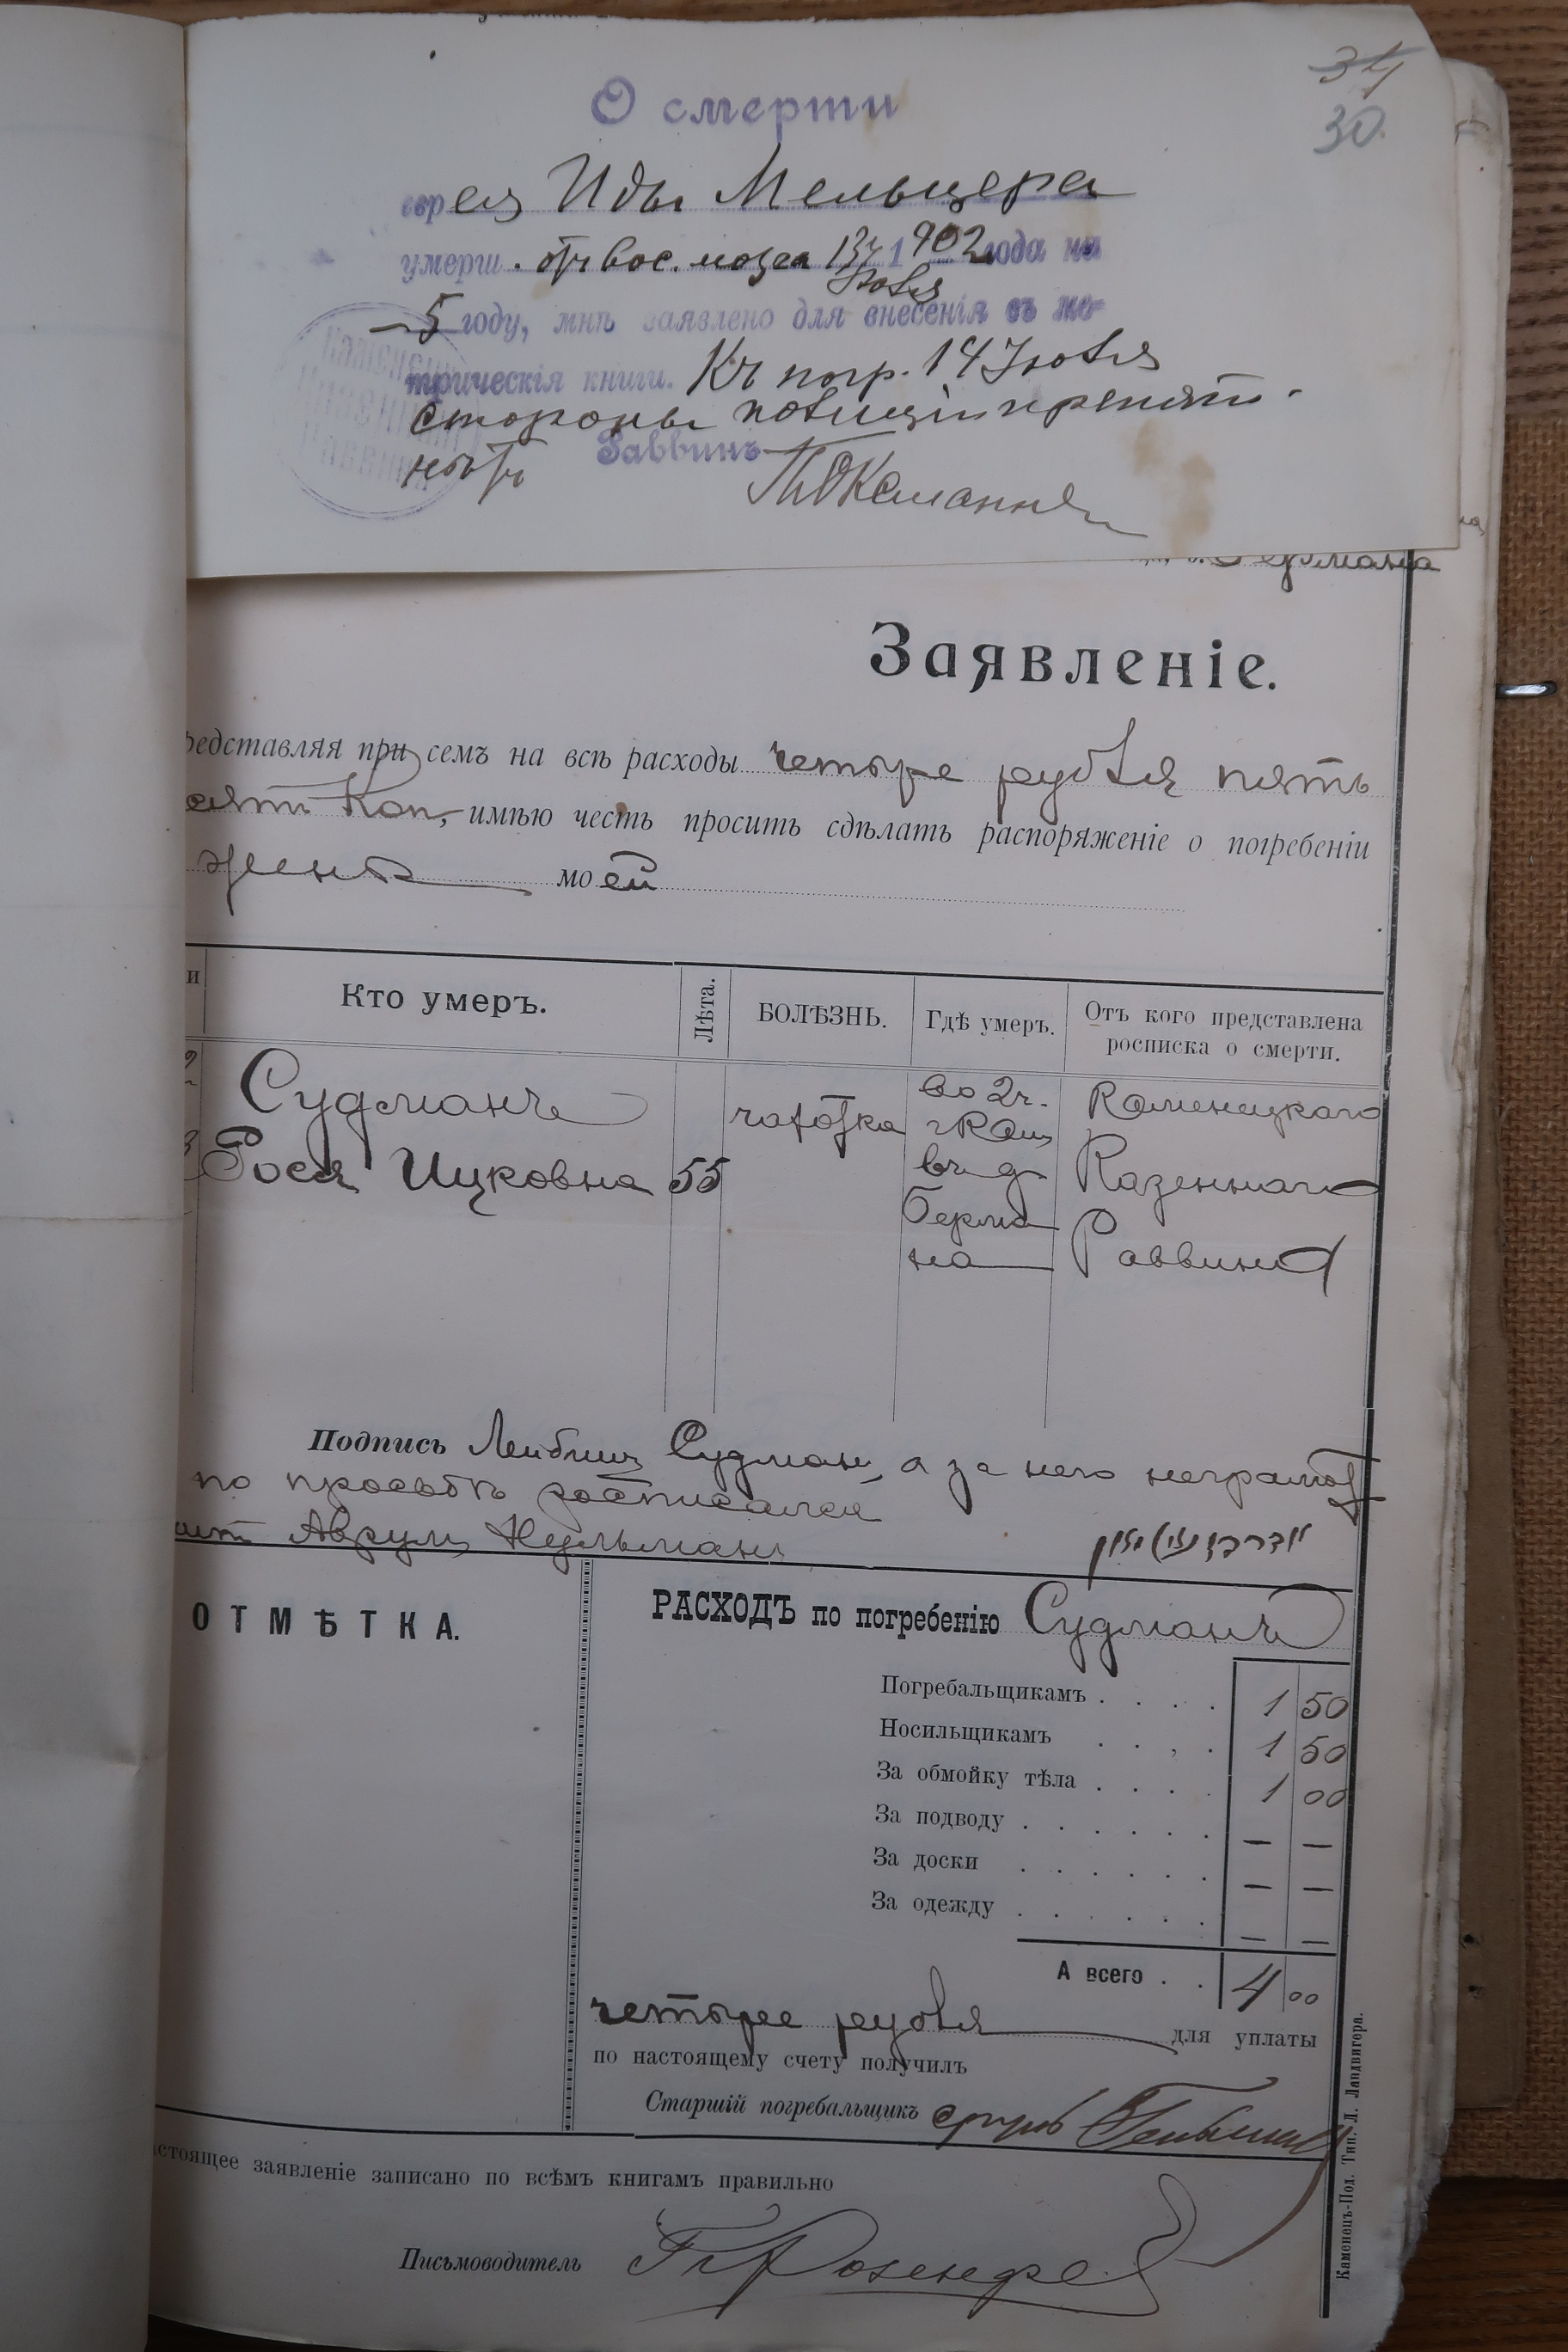 34
30
О смерти
еврея Иды Мельцера
умерш. отъ вос. мозга 13 Іюля 1902 года на
5 году, мнѣ заявлено для внесенія въ ме-
трическія книги. Къ погр. 14 Іюля
стороны полиціи препят.
нѣтъ Раввинъ
Германа
Заявленіе.
редставляя при семъ на всѣ расходы четыре рубля пять
сятъ коп, имѣю честь просить сдѣлать распоряженіе о погребеніи
жены моей
и
Кто умеръ.
Лѣта.
БОЛѢЗНЬ.
Гдѣ умеръ.
Отъ кого представлена
росписка о смерти.
Судманъ
Рося Ицковна
55
чахотка
во 2 ч.
г Кам
въ д
Герма
на
Каменецкаго
Казеннаго
Раввина
Подпись Лейбиш Судман, а за него неграмот
по просьбѣ росписался
Аврум
ОТМѢТКА.
РАСХОДЪ по погребенію Судманъ
Погребальщикамъ . . . . 1 50
Носильщикамъ . . . . 1 50
За обмойку тѣла . . . . 1 00
За подводу . . . . . . — —
За доски . . . . . . — —
За одежду . . . . . . — —
А всего . . 4 00
четыре рубля для уплаты
по настоящему счету получилъ
Старшій погребальщикъ
астоящее заявленіе записано по всѣмъ книгамъ правильно
Письмоводитель
Каменецъ-Под. Тип. Л. Ландвигера.